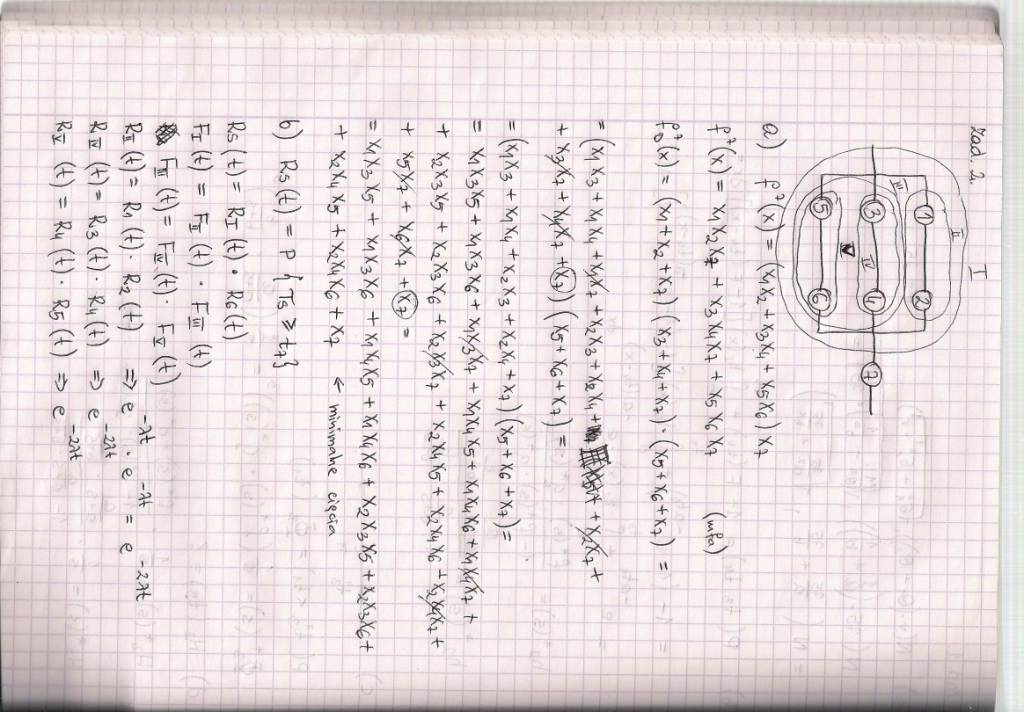 Zad. 2.
I
II
III
1 2
3 IV 4
V
5 6
7
a) f⁺(x) = (x1x2 + x3x4 + x5x6) x7
f⁺(x) = x1x2x7 + x3x4x7 + x5x6x7 (mfa)
f⁺D(x) = (x1+x2+x7) (x3+x4+x7) · (x5+x6+x7) =
= (x1x3 + x1x4 + x1x7 + x2x3 + x2x4 + x2x7 +
+ x3x7 + x4x7 + x7) (x5+x6+x7) =
= (x1x3 + x1x4 + x2x3 + x2x4 + x7) (x5+x6+x7) =
= x1x3x5 + x1x3x6 + x1x3x7 + x1x4x5 + x1x4x6 + x1x4x7 +
+ x2x3x5 + x2x3x6 + x2x3x7 + x2x4x5 + x2x4x6 + x2x4x7 +
+ x5x7 + x6x7 + x7 =
= x1x3x5 + x1x3x6 + x1x4x5 + x1x4x6 + x2x3x5 + x2x3x6 +
+ x2x4x5 + x2x4x6 + x7 ← minimalne cięcia
b) Rs(t) = P{Ts ≥ t}
Rs(t) = RI(t) · R6(t)
FI(t) = FII(t) · FIII(t)
FIII(t) = FIV(t) · FV(t)
RII(t) = R1(t) · R2(t) ⇒ e^-λt · e^-λt = e^-2λt
RIV(t) = R3(t) · R4(t) ⇒ e^-2λt
RV(t) = R4(t) · R5(t) ⇒ e^-2λt